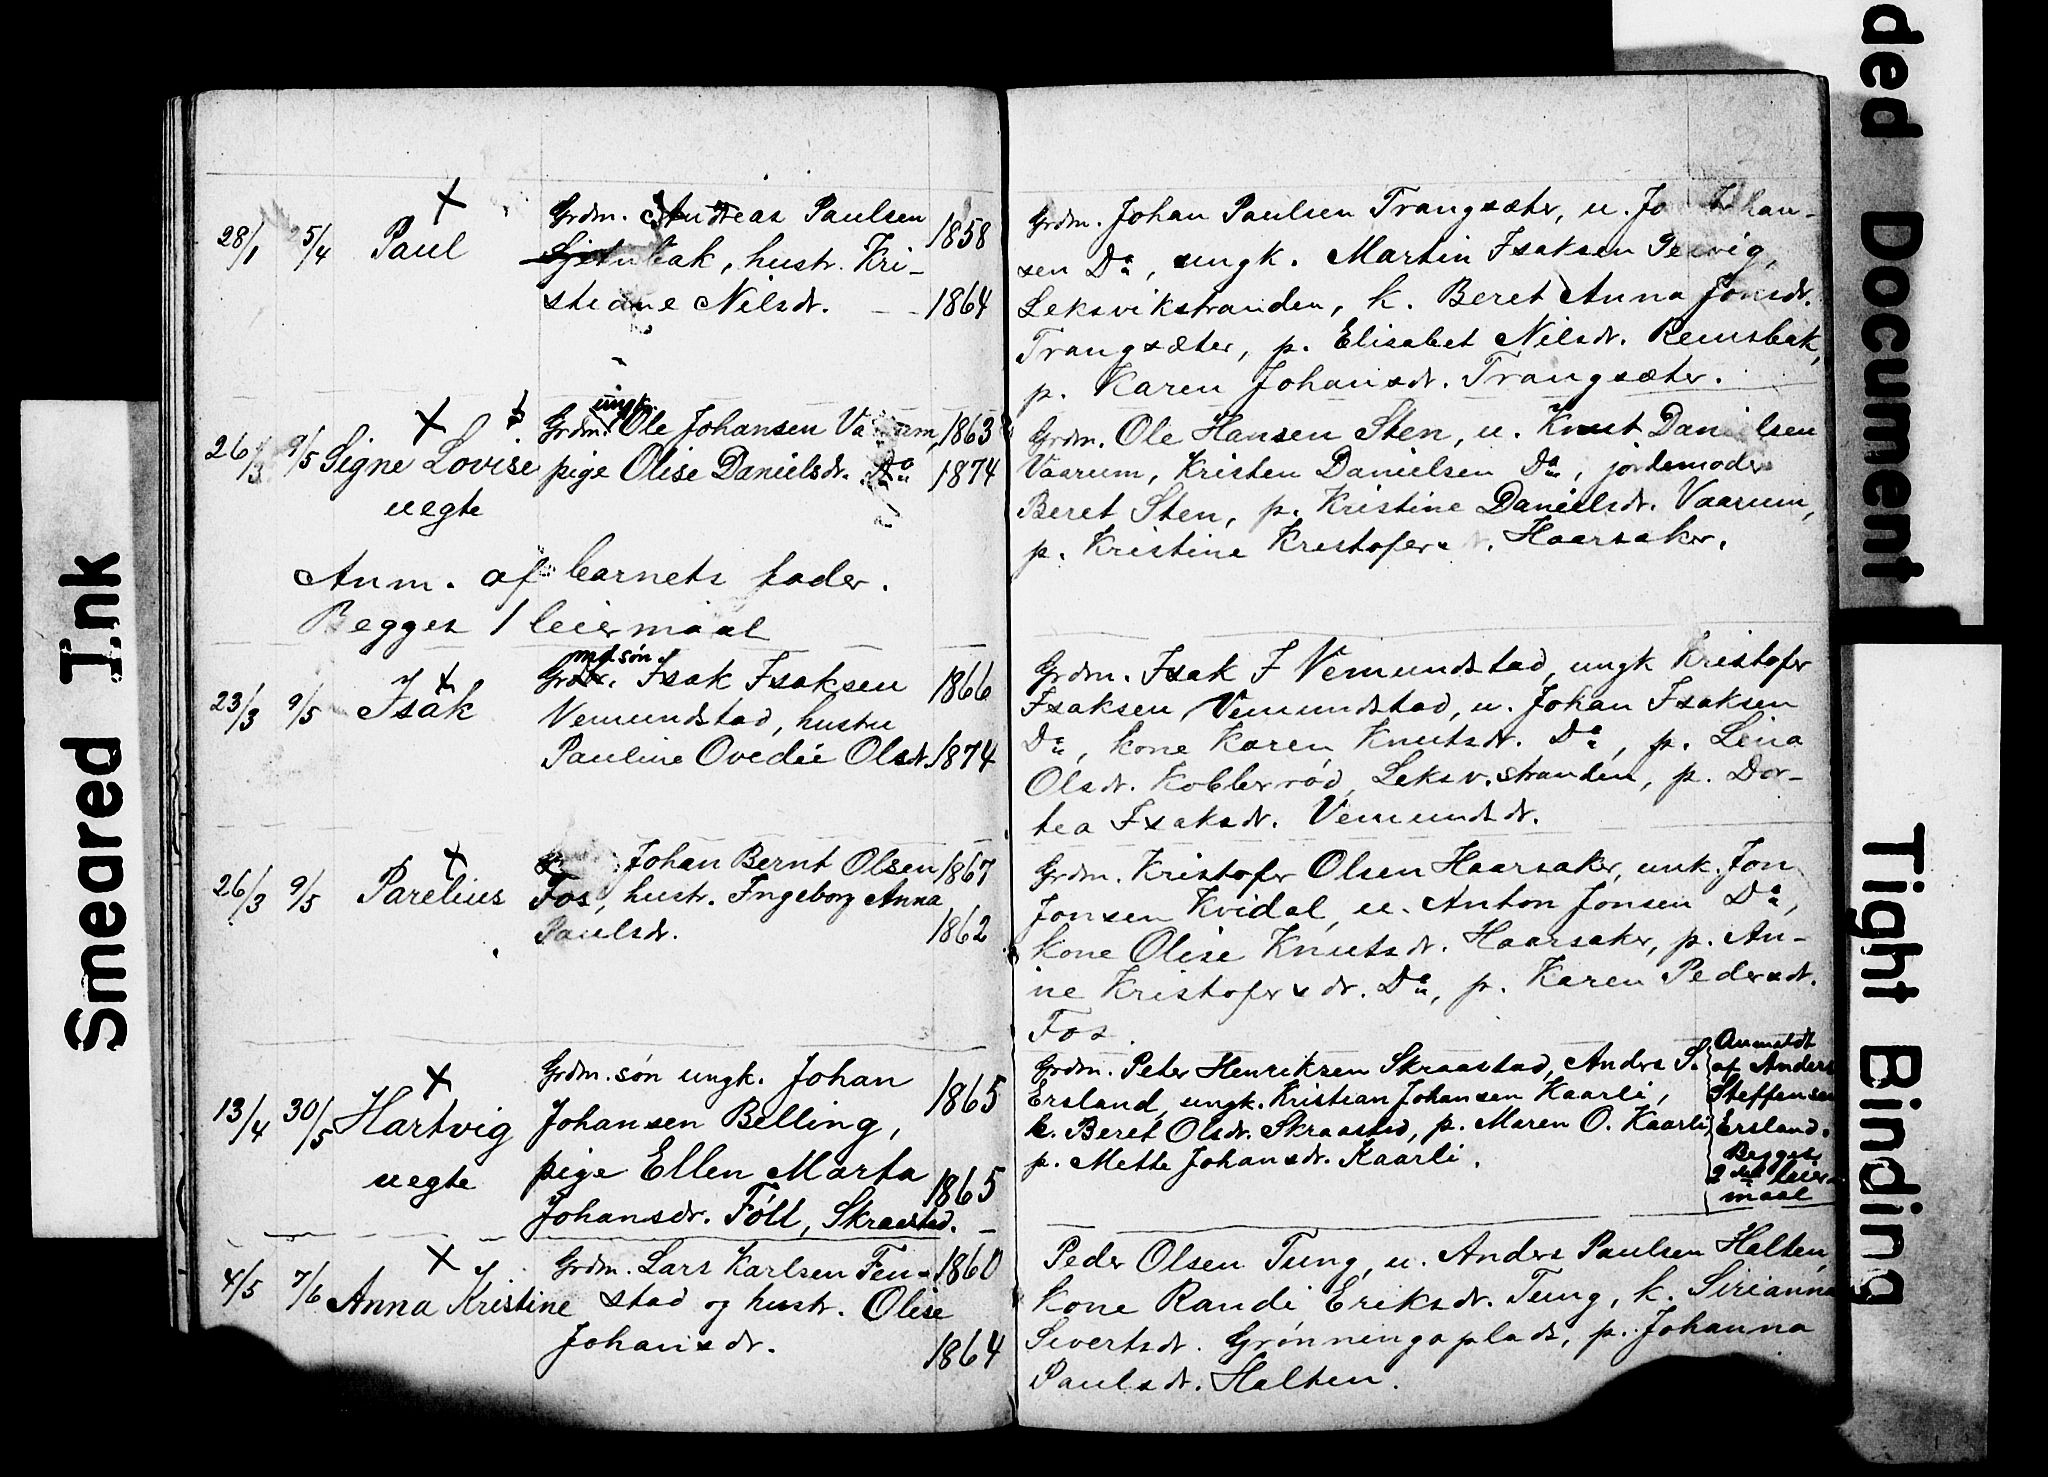 28/1 25/4 Paul
Grdm. Andreas Paulsen 1858
hustr. Kri-
stiane Nilsdr. - - 1864
Grdm. Johan Paulsen Trangsæter, u. Jo Johan-
sen Do, ungk. Martin Isaksen
Leksvikstranden, k. Beret Anna Jonsdr.
Trangsæter, p. Elisabet Nilsdr. Remsbak,
p. Karen Johansdr. Trangsæter.
26/3 9/5 Signe Lovise
uegte
ungk.
Grdm. Ole Johansen Vaarum, 1863
pige Olise Danielsdr. Do 1874
Anm. af barnets fader.
Begges 1 leiermaal
Grdm. Ole Hansen Sten, u. Knut Danielsen
Vaarum, Kristen Danielsen Do, jordemoder
Beret Sten, p. Kristine Danielsdr. Vaarum,
p. Kristine Kristofersdr. Haarsaker.
23/3 9/5 Isak
md. søn
Isak Isaksen 1866
Vemundstad, hustru
Pauline Ovedie Olsdr. 1874
Grdm. Isak I Vemundstad, ungk Kristofer
Isaksen Vemundstad, u. Johan Isaksen
Do, kone Karen Knutsdr. Do, p. Lina
Olsdr. Koblerrød, Leksv.stranden, p. Dor-
tea Isaksdr. Vemundsdr.
26/3 9/5 Parelius
Johan Bernt Olsen 1867
Fos, hustr. Ingeborg Anna
Paulsdr. 1862
Grdm. Kristofer Olsen Haarsaker, unk. Jon
Jonsen Kvidal, u. Anton Jonsen Do,
kone Olise Knutsdr. Haarsaker, p. An-
ine Kristofersdr. Do, p. Karen Pedersdr.
Fos
13/4 30/5 Hartvig
uegte
Grdm. søn ungk. Johan 1865
Johansen Belling,
pige Ellen Marta 1865
Johansdr. Föll, Skraastad.
Grdm. Peter Henriksen Skraastad, Anders S.
Ersland, ungk. Kristian Johansen Kaarli,
k. Beret Olsdr. Skraastad, p. Maren O. Kaarli,
p. Mette Johansdr. Kaarli.
Anmeldt
af Anders
Steffensen
Ersland.
Begges
2det leier-
maal
4/5 7/6 Anna Kristine
Grdm. Lars Karlsen Fen- 1860
stad og hustr. Olise
Johansdr. 1864
Peder Olsen Tung, u. Anders Paulsen Halten,
kone Randi Eriksdr. Tung, k. Sirianna
Sivertsdr. Grönningsplads, p. Johanna
Paulsdr. Halten.
Smeared Ink
ded Document
Tight Binding